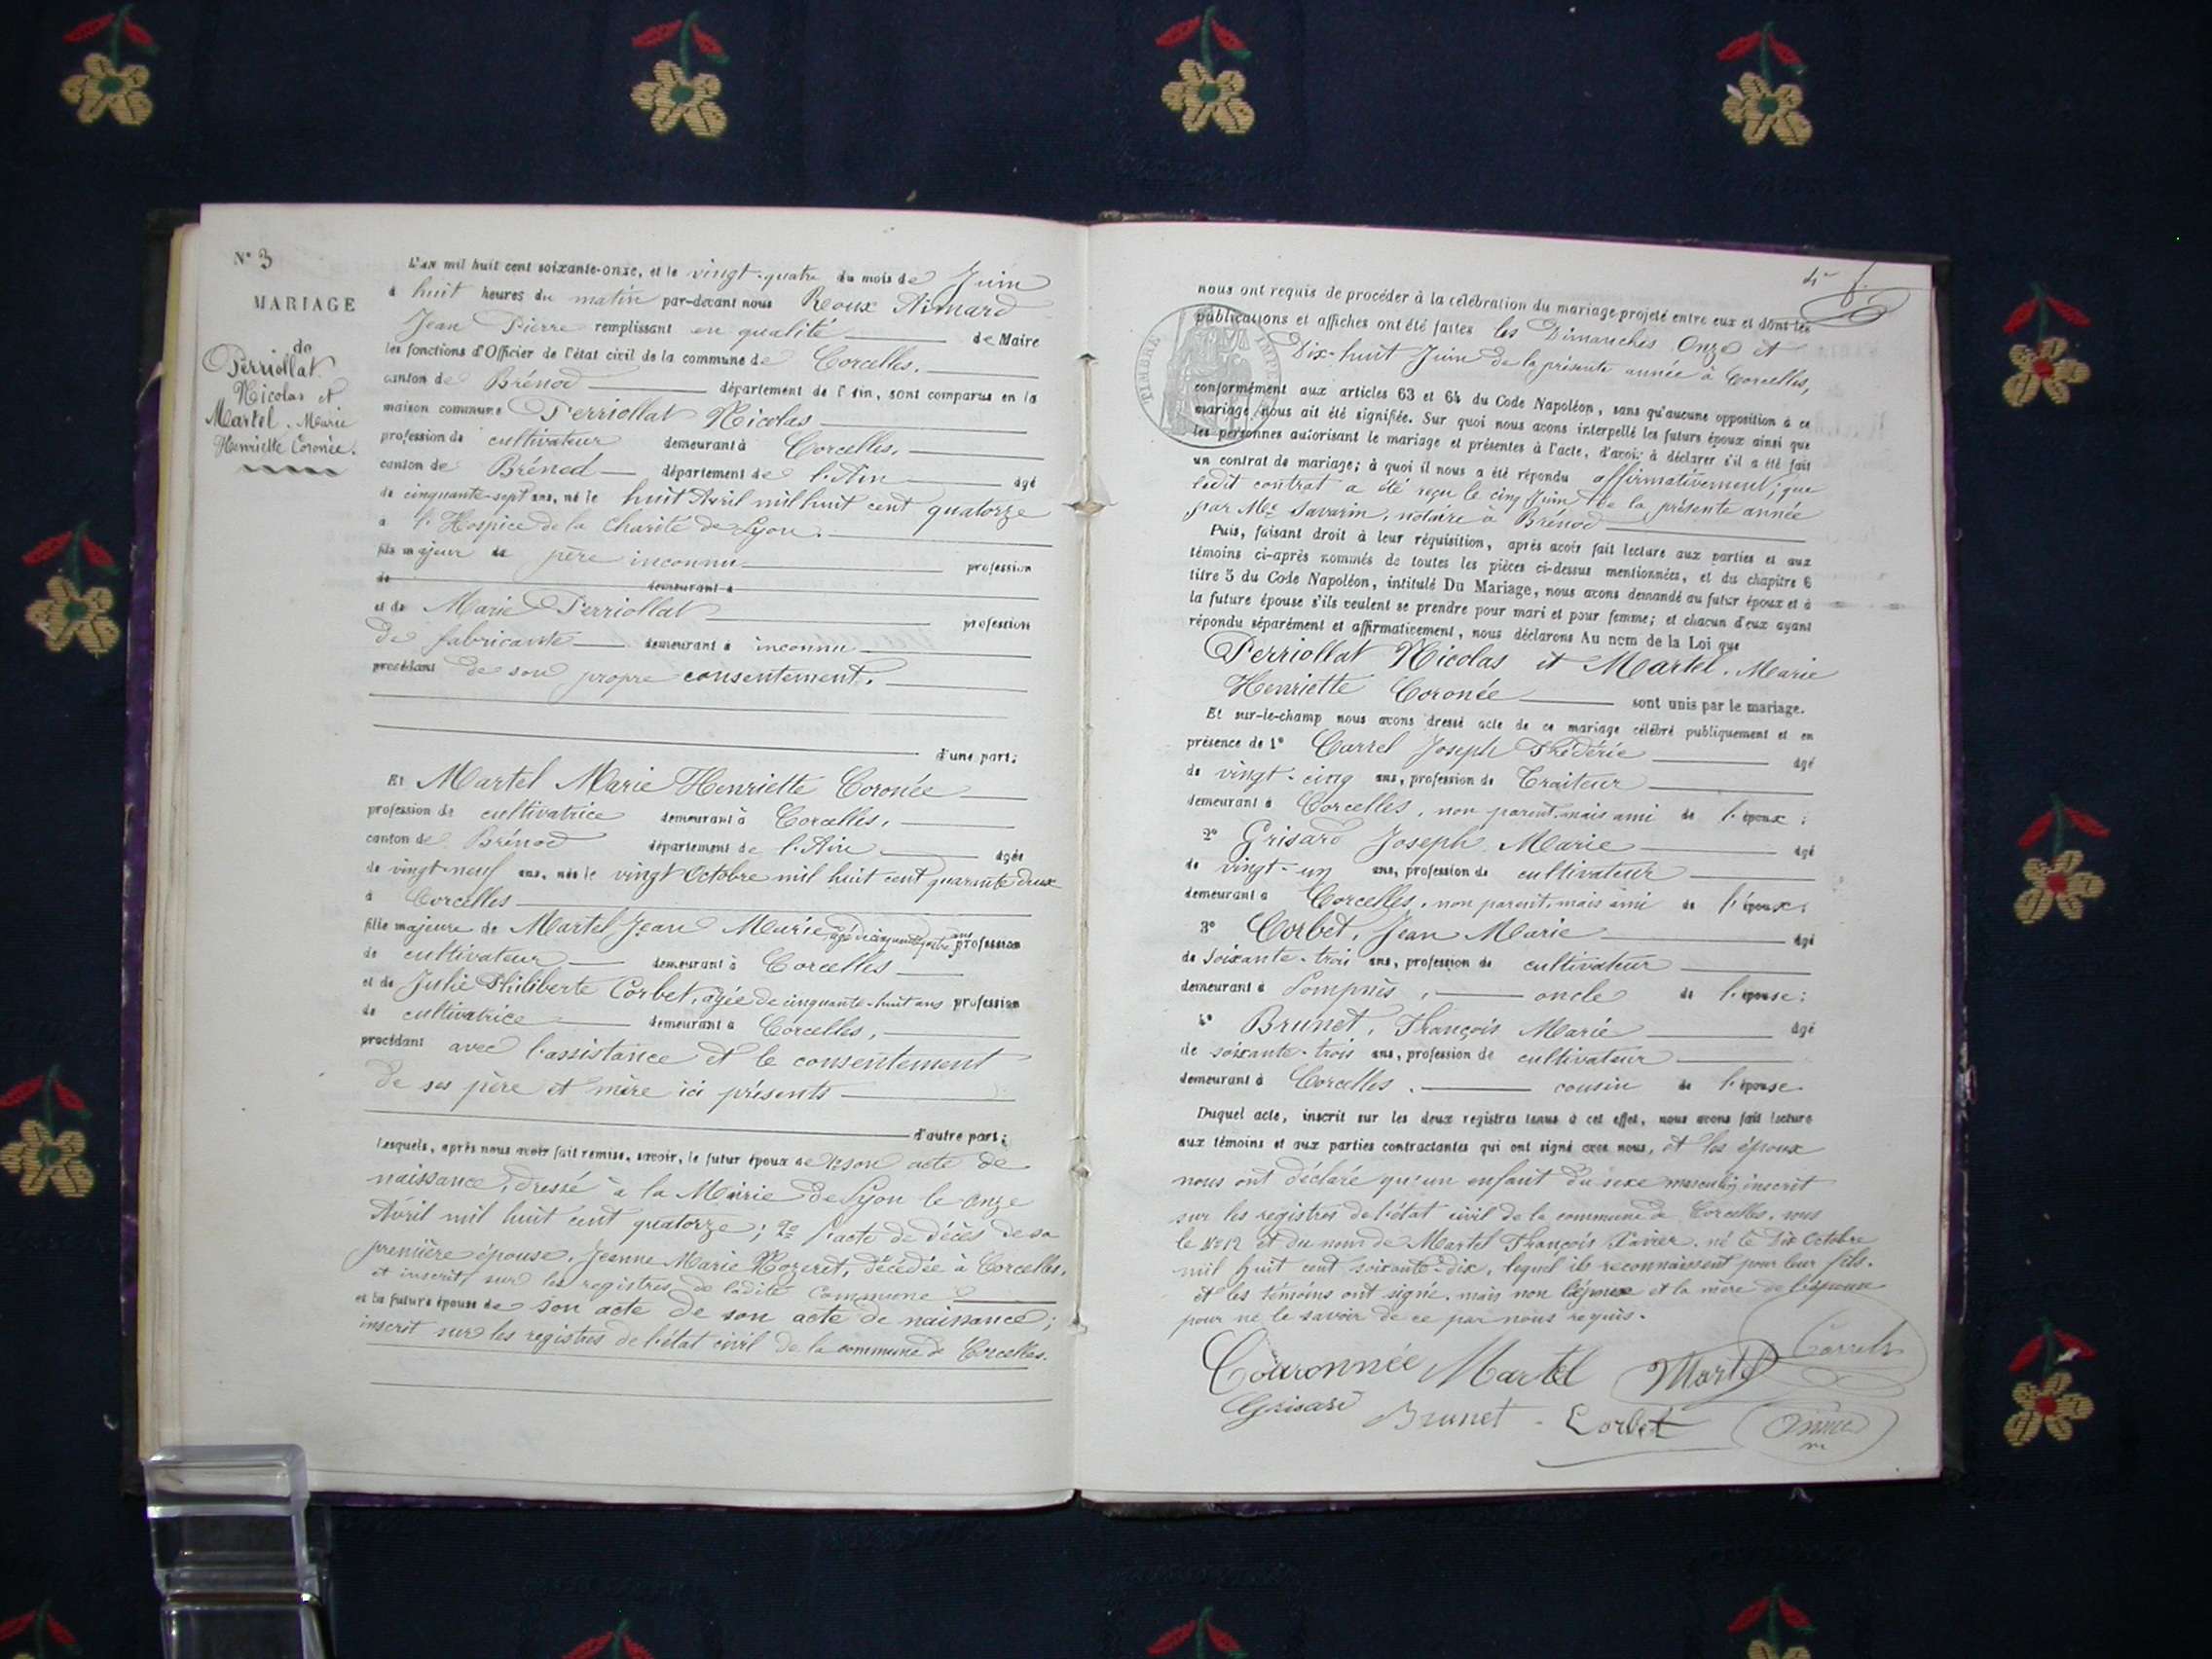 N° 3
MARIAGE
de
Perriollat
Nicolas et
Martel. Marie
Henriette Coronée.
L'an mil huit cent soixante-onze, et le vingt-quatre du mois de Juin
à huit heures du matin par-devant nous Roux Aimard
Jean Pierre remplissant en qualité de Maire
les fonctions d'Officier de l'état civil de la commune de Corcelles.
canton de Brénod département de l'Ain, sont comparus en la
maison commune Perriollat Nicolas
profession de cultivateur demeurant à Corcelles.
canton de Brénod département de l'Ain âgé
de cinquante-sept ans, né le huit Avril mil huit cent quatorze
à l'Hospice de la Charité de Lyon.
fils majeur de père inconnu profession
de demeurant à
et de Marie Perriollat profession
de fabricante demeurant à inconnu
procédant de son propre consentement.
d'une part;
Et Martel Marie Henriette Coronée
profession de cultivatrice demeurant à Corcelles.
canton de Brénod département de l'Ain âgée
de vingt-neuf ans, née le vingt Octobre mil huit cent quarante deux
à Corcelles
fille majeure de Martel Jean Marie âgé de cinquante quatre ans profession
de cultivateur demeurant à Corcelles
et de Julie Philiberte Corbet, âgée de cinquante-huit ans profession
de cultivatrice demeurant à Corcelles,
procédant avec l'assistance et le consentement
de ses père et mère ici présents
d'autre part;
Lesquels, après nous avoir fait remise, savoir, le futur époux de 1° son acte de
naissance, dressé à la Mairie de Lyon le onze
Avril mil huit cent quatorze; 2° l'acte de décès de sa
première épouse, Jeanne Marie Mozeret, décédée à Corcelles,
et inscrit, sur les registres de ladite commune
et la future épouse de son acte de son acte de naissance;
inscrit sur les registres de l'état civil de la commune de Corcelles.
nous ont requis de procéder à la célébration du mariage projeté entre eux et dont les
publications et affiches ont été faites les Dimanches Onze et
Dix-huit Juin de la présente année à Corcelles,
TIMBRE IMPÉRIAL
conformément aux articles 63 et 64 du Code Napoléon, sans qu'aucune opposition à ce
mariage nous ait été signifiée. Sur quoi nous avons interpellé les futurs époux ainsi que
les personnes autorisant le mariage et présentes à l'acte, d'avoir à déclarer s'il a été fait
un contrat de mariage; à quoi il nous a été répondu affirmativement; que
ledit contrat a été reçu le cinq Juin de la présente année
par Me Savarin, notaire à Brénod
Puis, faisant droit à leur réquisition, après avoir fait lecture aux parties et aux
témoins ci-après nommés de toutes les pièces ci-dessus mentionnées, et du chapitre 6
titre 5 du Code Napoléon, intitulé Du Mariage, nous avons demandé au futur époux et à
la future épouse s'ils veulent se prendre pour mari et pour femme; et chacun d'eux ayant
répondu séparément et affirmativement, nous déclarons Au nom de la Loi que
Perriollat Nicolas et Martel. Marie
Henriette Coronée sont unis par le mariage.
Et sur-le-champ nous avons dressé acte de ce mariage célébré publiquement et en
présence de 1° Carrel Joseph Frédéric âgé
de vingt-cinq ans, profession de Traiteur
demeurant à Corcelles, non parent, mais ami de l'époux;
2° Grisard Joseph Marie âgé
de vingt-un ans, profession de cultivateur
demeurant à Corcelles, non parent, mais ami de l'époux;
3° Corbet, Jean Marie âgé
de soixante-trois ans, profession de cultivateur
demeurant à Lompnès, oncle de l'épouse;
4° Brunet, François Marie âgé
de soixante-trois ans, profession de cultivateur
demeurant à Corcelles. cousin de l'épouse
Duquel acte, inscrit sur les deux registres tenus à cet effet, nous avons fait lecture
aux témoins et aux parties contractantes qui ont signé avec nous, et les époux
nous ont déclaré qu'un enfant du sexe masculin inscrit
sur les registres de l'état civil de la commune de Corcelles, sous
le N° 12 et du nom de Martel François Xavier, né le Dix Octobre
mil huit cent soixante-dix, lequel ils reconnaissent pour leur fils.
et les témoins ont signé, mais non l'époux et la mère de l'épouse
pour ne le savoir de ce par nous requis.
Couronnée Martel Martel Carrel
Grisard Brunet Corbet